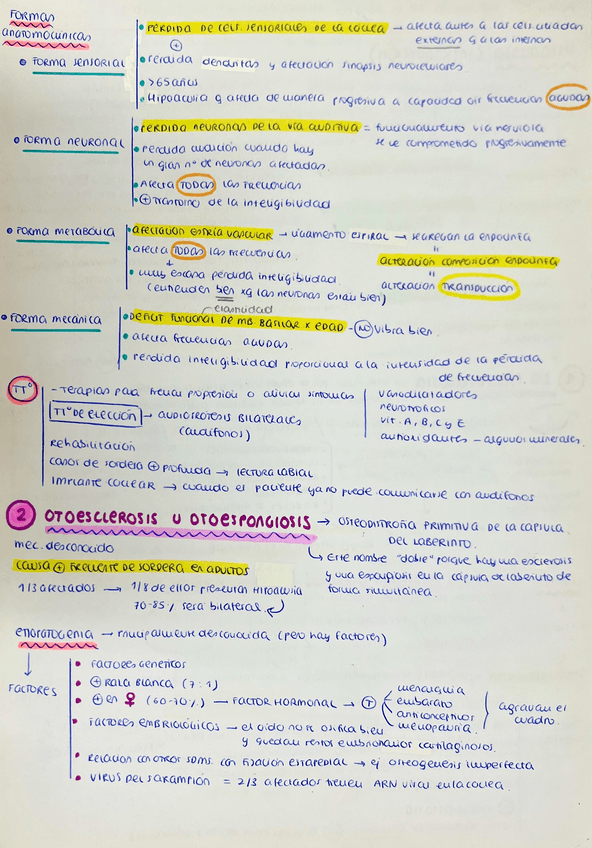 FORMAS
anatomoclínicas
• FORMA SENSORIAL
• PÉRDIDA DE CELS. SENSORIALES DE LA COCLEA → afecta antes a las cel. ciliadas
externas q a las internas
+
• Pérdida dendritas y afectación sinapsis neurocelulares
• >65 años
• Hipoacusia q afecta de manera progresiva a capacidad oír frecuencias AGUDAS
• FORMA NEURONAL
• PÉRDIDA NEURONAS DE LA VÍA AUDITIVA = funcionamiento vía nerviosa
se ve comprometido progresivamente
• Pérdida audición cuando hay
un gran nº de neuronas afectadas.
• Afecta TODAS las frecuencias
• + Trastorno de la inteligibilidad
• FORMA METABÓLICA
• afectación estría vascular → ligamento espiral → segregan la endolinfa
• afecta TODAS las frecuencias.
"
alteración composición endolinfa
+
• muy escasa pérdida inteligibilidad
"
(entienden bien xq las neuronas están bien)
alteración TRANSDUCCIÓN
• FORMA MECÁNICA
elasticidad
• Déficit funcional de mb basilar x EDAD - NO vibra bien.
• afecta frecuencias agudas.
• Pérdida inteligibilidad proporcional a la intensidad de la pérdida
de frecuencias.
TTº
- Terapias para frenar progresión o aliviar síntomas
vasodilatadores
neurotróficos
vit. A, B, C y E
antioxidantes - algunos minerales.
TTº DE ELECCIÓN → AUDIOPRÓTESIS BILATERALES
(audífonos)
Rehabilitación
Casos de sordera + profunda → LECTURA LABIAL
IMPLANTE COCLEAR → cuando el paciente ya no puede comunicarse con audífonos
2 OTOESCLEROSIS U OTOESPONGIOSIS → OSTEODISTROFIA PRIMITIVA DE LA CÁPSULA
DEL LABERINTO.
mec. desconocido
↳ Este nombre "doble" porque hay una esclerosis
y una espongiosis en la cápsula del laberinto de
forma simultánea.
CAUSA + FRECUENTE DE SORDERA EN ADULTOS
1/3 afectados → 1/8 de ellos presentan Hipoacusia
70-85% será bilateral
etiopatogenia → principalmente desconocida (pero hay factores)
↓
FACTORES
• FACTORES GENÉTICOS
• + RAZA BLANCA (7:1)
• + en ♀ (60-70%) — FACTOR HORMONAL →
menarquia
embarazo
anticonceptivos
menopausia
agravan el
cuadro.
• FACTORES EMBRIOLÓGICOS → el oído no se osifica bien
y quedan restos embrionarios cartilaginosos.
• Relación con otros sdms. con fijación estapedial → ej osteogénesis imperfecta
• VIRUS DEL SARAMPIÓN = 2/3 afectados tienen ARN viral en la cóclea.